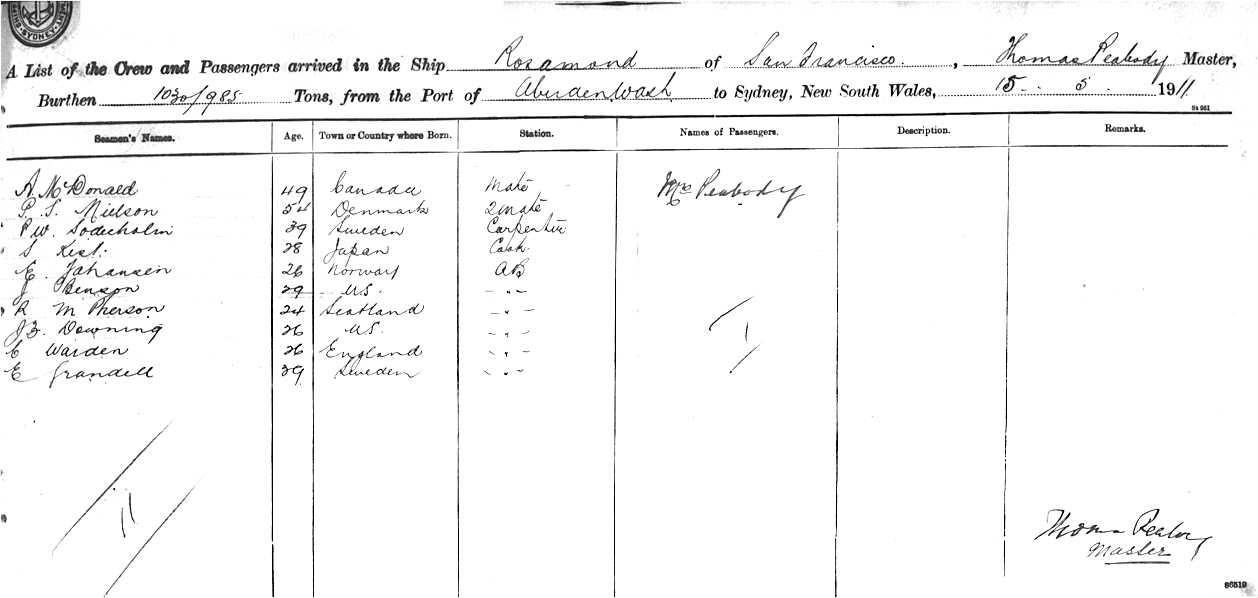 SYDNEY
A List of the Crew and Passengers arrived in the Ship Rosamond of San Francisco, Thomas Peabody Master,
Burthen 1030/985 Tons, from the Port of Aberdeen Wash to Sydney, New South Wales, 15 . 5 . 1911
St 961
Seamen's Names. Age. Town or Country where Born. Station. Names of Passengers. Description. Remarks.
A. McDonald 49 Canada Mate Mrs Peabody
P. S. Nielson 54 Denmark 2 Mate
P W. Soderholm 39 Sweden Carpenter
S Kist. 28 Japan Cook
E. Johansen 26 Norway AB
J Benson 29 U S. - " -
R McPherson 24 Scotland - " -
Downing 26 U S. - " -
C Warden 26 England - " -
E Grandell 29 Sweden - " -
1
11
Thomas Peabody
Master
86519